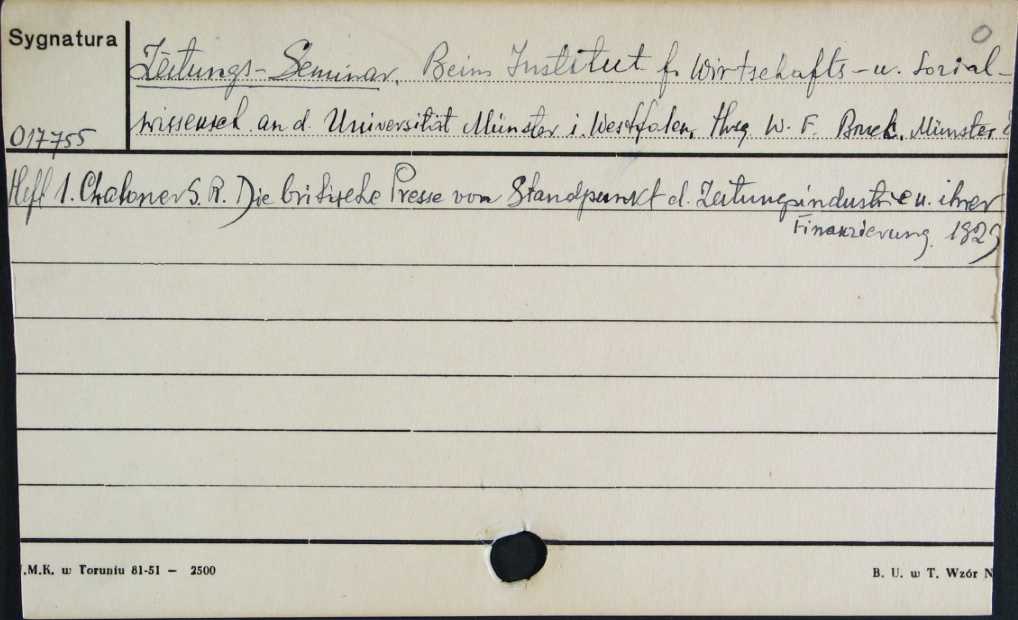 Sygnatura
0
Zeitungs-Seminar. Beim Institut f. Wirtschafts-u. Sozial-
wissensch. an d. Universität Münster i. Westfalen, Hrsg. W. F. Bruck. Münster
017755
Heft 1. Chaloner S. R. Die britische Presse vom Standpunkt d. Zeitungsindustrie u. ihrer
Finanzierung. 1927
.M.K. w Toruniu 81-51 — 2500
B. U. w T. Wzór N